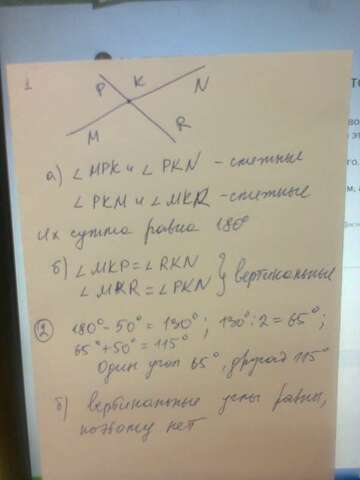 1
P K N
M R
а) ∠ MPK и ∠ PKN - смежные
∠ PKM и ∠ MKR - смежные
Их сумма равна 180°
б) ∠ MKP = ∠ RKN
∠ MKR = ∠ PKN } вертикальные
2 180° - 50° = 130° ; 130° : 2 = 65° ;
65° + 50° = 115°
Один угол 65°, другой 115°
б) вертикальные углы равны,
поэтому нет